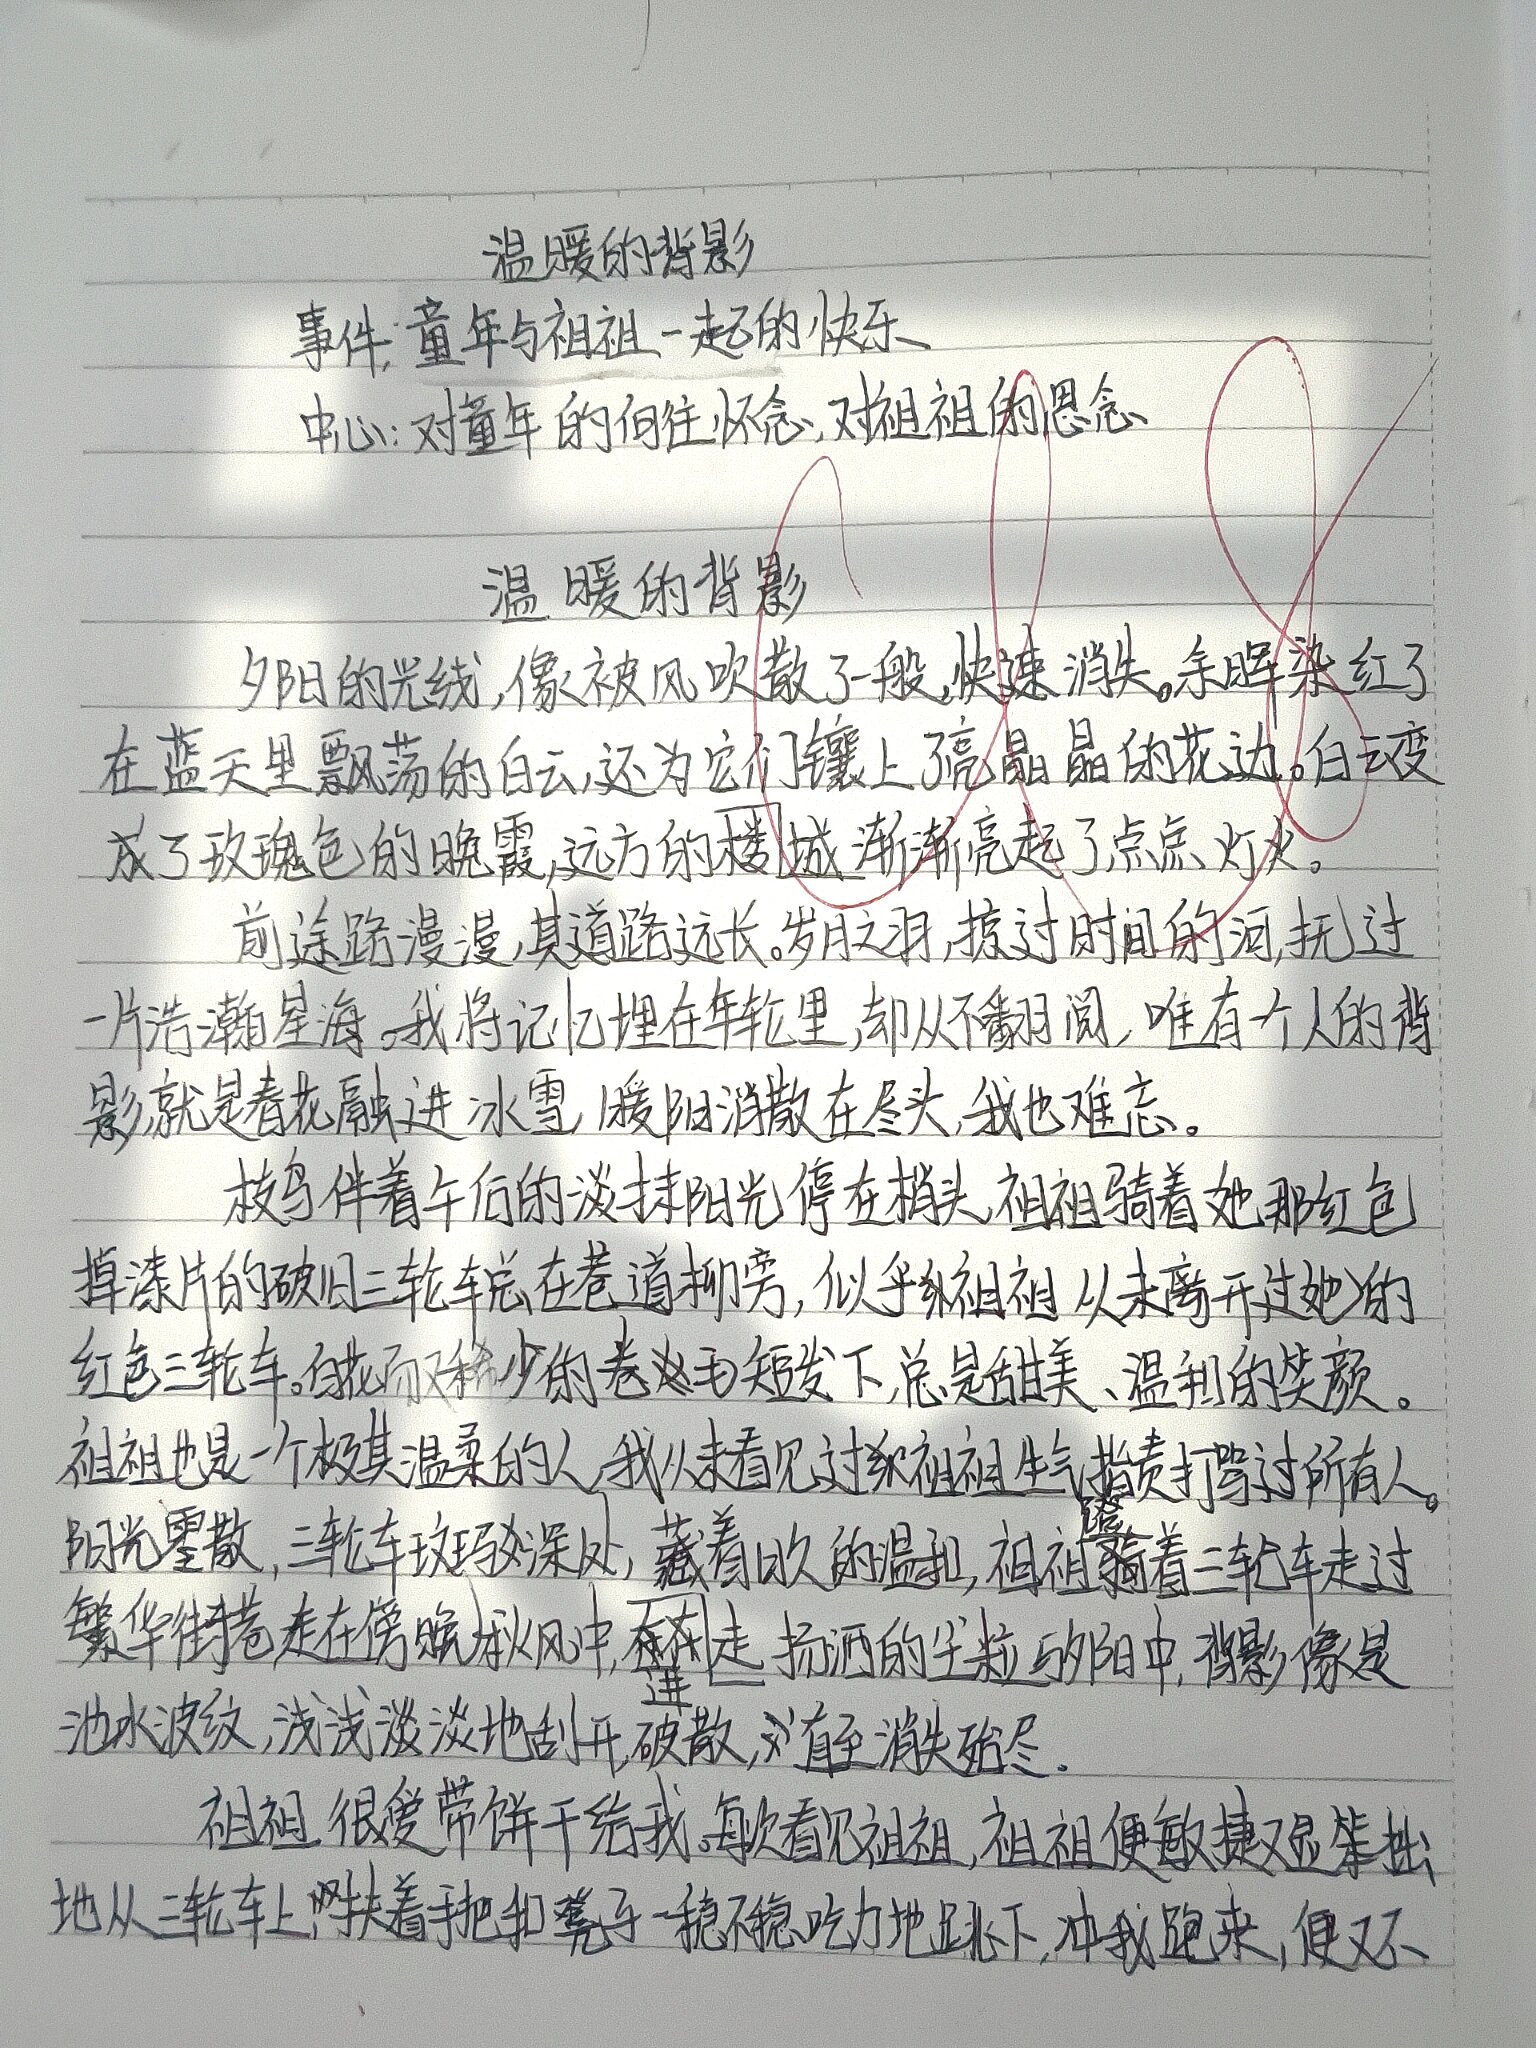 温暖的背影
事件:童年与祖祖一起的快乐
中心:对童年的向往怀念,对祖祖的恩念
温暖的背影
夕阳的光线,像被风吹散了一般,快速消失。余晖染红了
在蓝天里飘荡的白云,还为它们镶上了亮晶晶的花边。白云变
成了玫瑰色的晚霞,远方的楼城渐渐亮起了点点灯火。
前途路漫漫,其道路远长。岁月之羽,掠过时间的河,抚过
一片浩瀚星海。我将记忆埋在年轮里,却从不翻阅,唯有一个人的背
影,就是春花融进冰雪,暖阳消散在尽头,我也难忘。
枝鸟伴着午后的淡抹阳光停在梢头,祖祖骑着她那红色
掉漆片的破旧三轮车总在巷道柳旁,似乎祖祖从未离开过她的
红色三轮车。白花而又稀少的卷毛短发下,总是甜美、温和的笑颜。
祖祖也是一个极其温柔的人,我从未看见过祖祖生气指责打骂过所有人。
阳光零散,三轮车斑驳深处,藏着日久的温和,祖祖蹬着三轮车走过
繁华街巷,走在傍晚秋风中,走进扬洒的尘粒与夕阳中,背影像是
池水波纹,浅浅淡淡地刮开,破散,直至消失殆尽.
祖祖很爱带饼干给我。每次看见祖祖,祖祖便敏捷又显笨拙
地从三轮车上,扶着手把和凳子一稳不稳吃力地跳下,冲我跑来,便又不